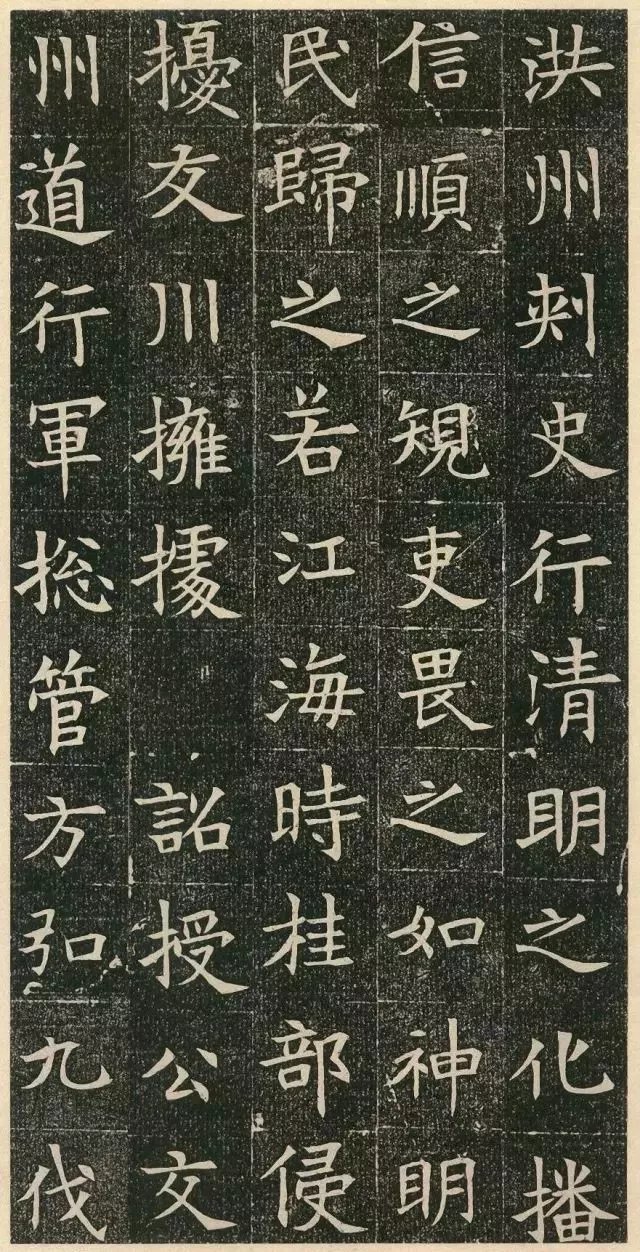 洪州刾史行清明之化播
信順之䂓吏畏之如神明
民歸之若江海時桂部侵
擾友川擁據詔授公交
州道行軍捴管方弘九伐